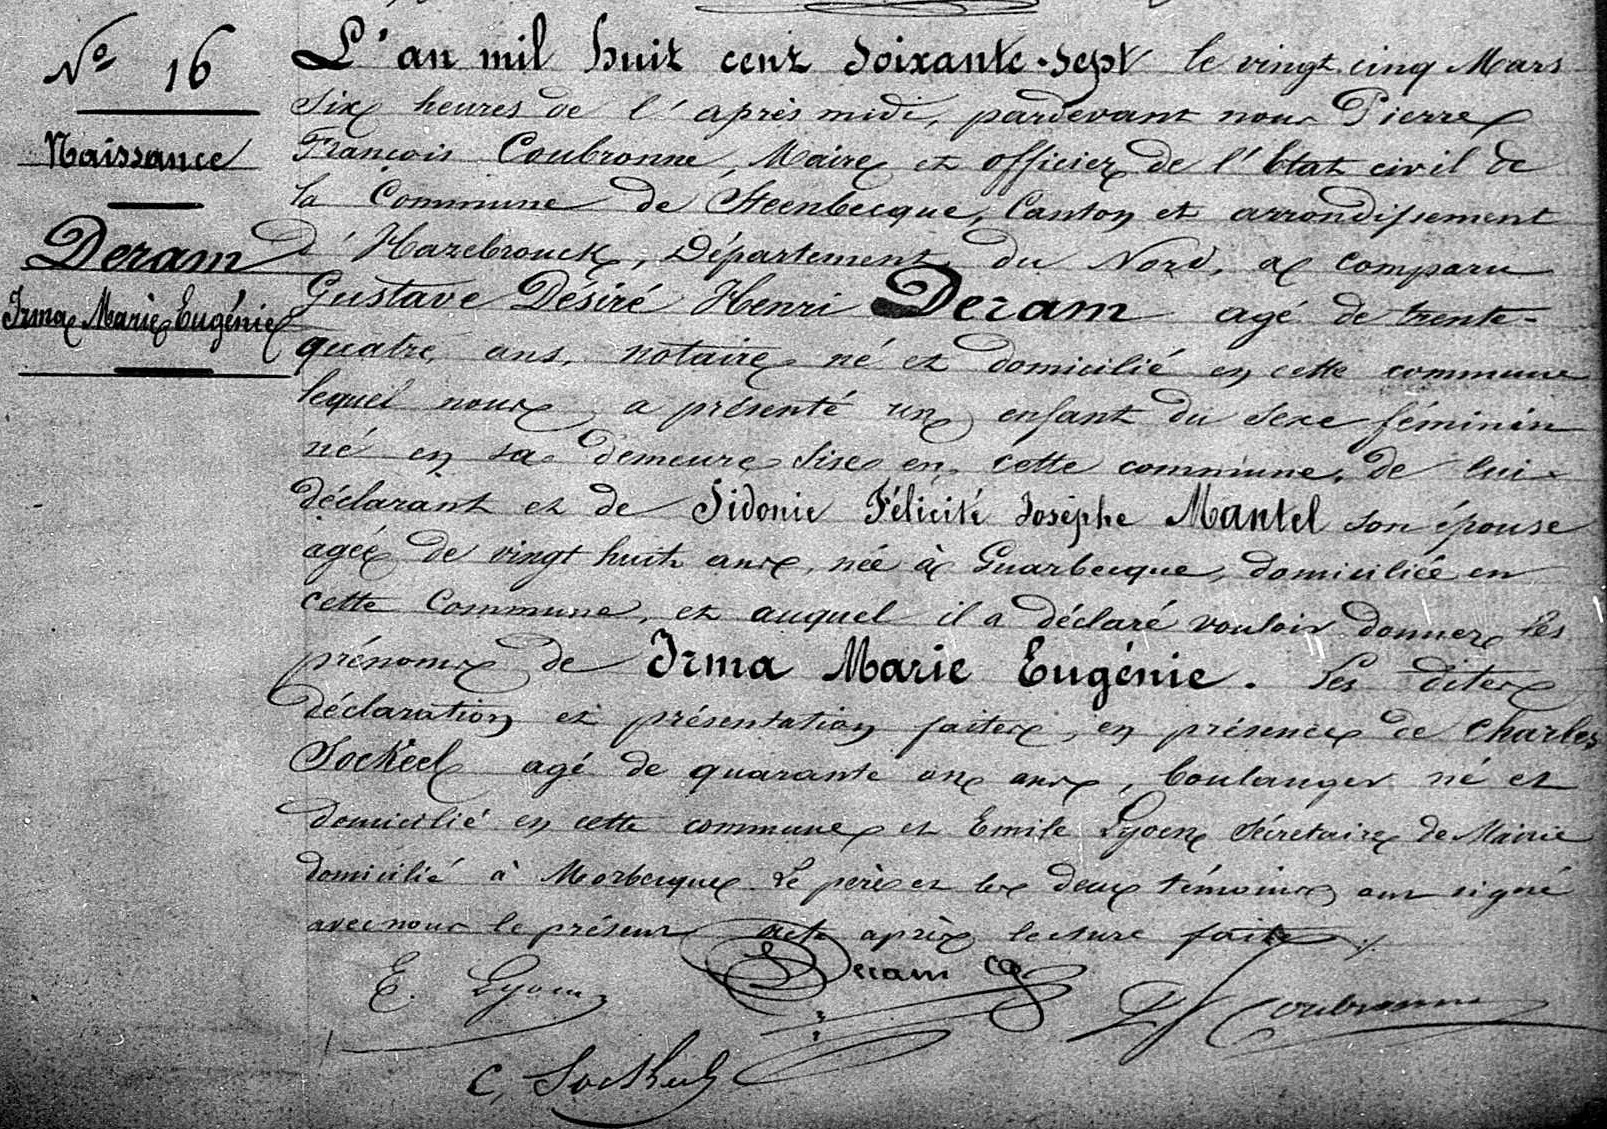 N° 16
Naissance
Deram
Irma Marie Eugénie
L'an mil huit cent soixante-sept le vingt cinq Mars
six heures de l'après midi, pardevant nous Pierre
François Coubronne, Maire et officier de l'Etat civil de
la Commune de Steenbecque, Canton et arrondissement
d'Hazebrouck, Département du Nord, a comparu
Gustave Désiré Henri Deram agé de trente-
quatre ans, notaire né et domicilié en cette commune
lequel nous a présenté un enfant du sexe féminin
né en sa demeure sise en cette commune, de lui
déclarant et de Sidonie Félicité Josèphe Mantel son épouse
agée de vingt huit ans, née à Guarbecque, domiciliée en
cette Commune, et auquel il a déclaré vouloir donner les
prénoms de Irma Marie Eugénie. Les dites
déclaration et présentation faites, en présence de Charles
Sockeel agé de quarante un ans, boulanger né et
domicilié en cette commune et Emile Lyoen Sécretaire de Mairie
domicilié à Morbecque. Le père et les deux témoins ont signé
avec nous le présent acte après lecture faite ./.
E. Lyoen
Deram
Pf Coubronne
C, Sockeel